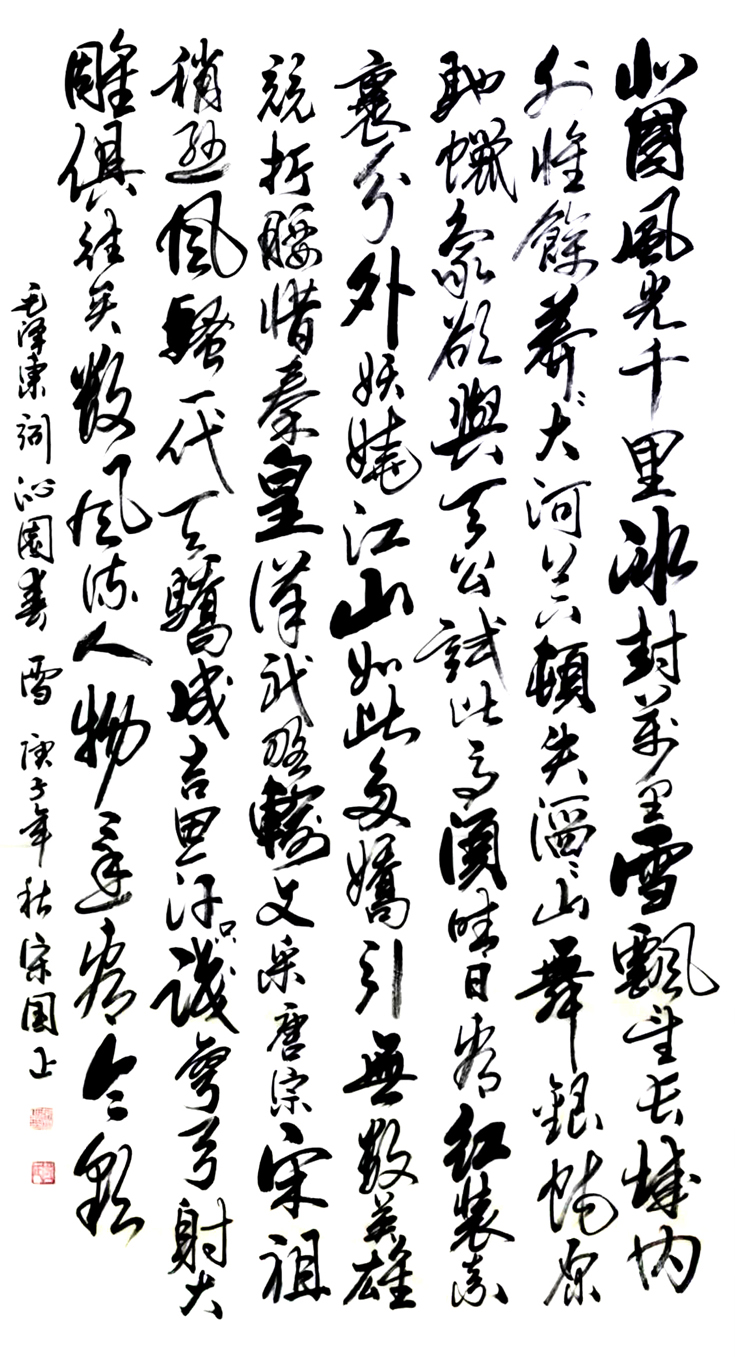 北國風光千里冰封萬里雪飄望長城内
外惟餘莽〻大河上下頓失滔〻山舞銀蛇原
馳蠟象欲與天公試比高須晴日看紅裝素
裹分外妖嬈江山如此多嬌引無數英雄
競折腰惜秦皇漢武略輸文采唐宗宋祖
稍遜風騷一代天驕成吉思汗只識彎弓射大
雕俱往矣數風流人物還看今朝
毛澤東詞沁園春雪 庚子年秋宋国上